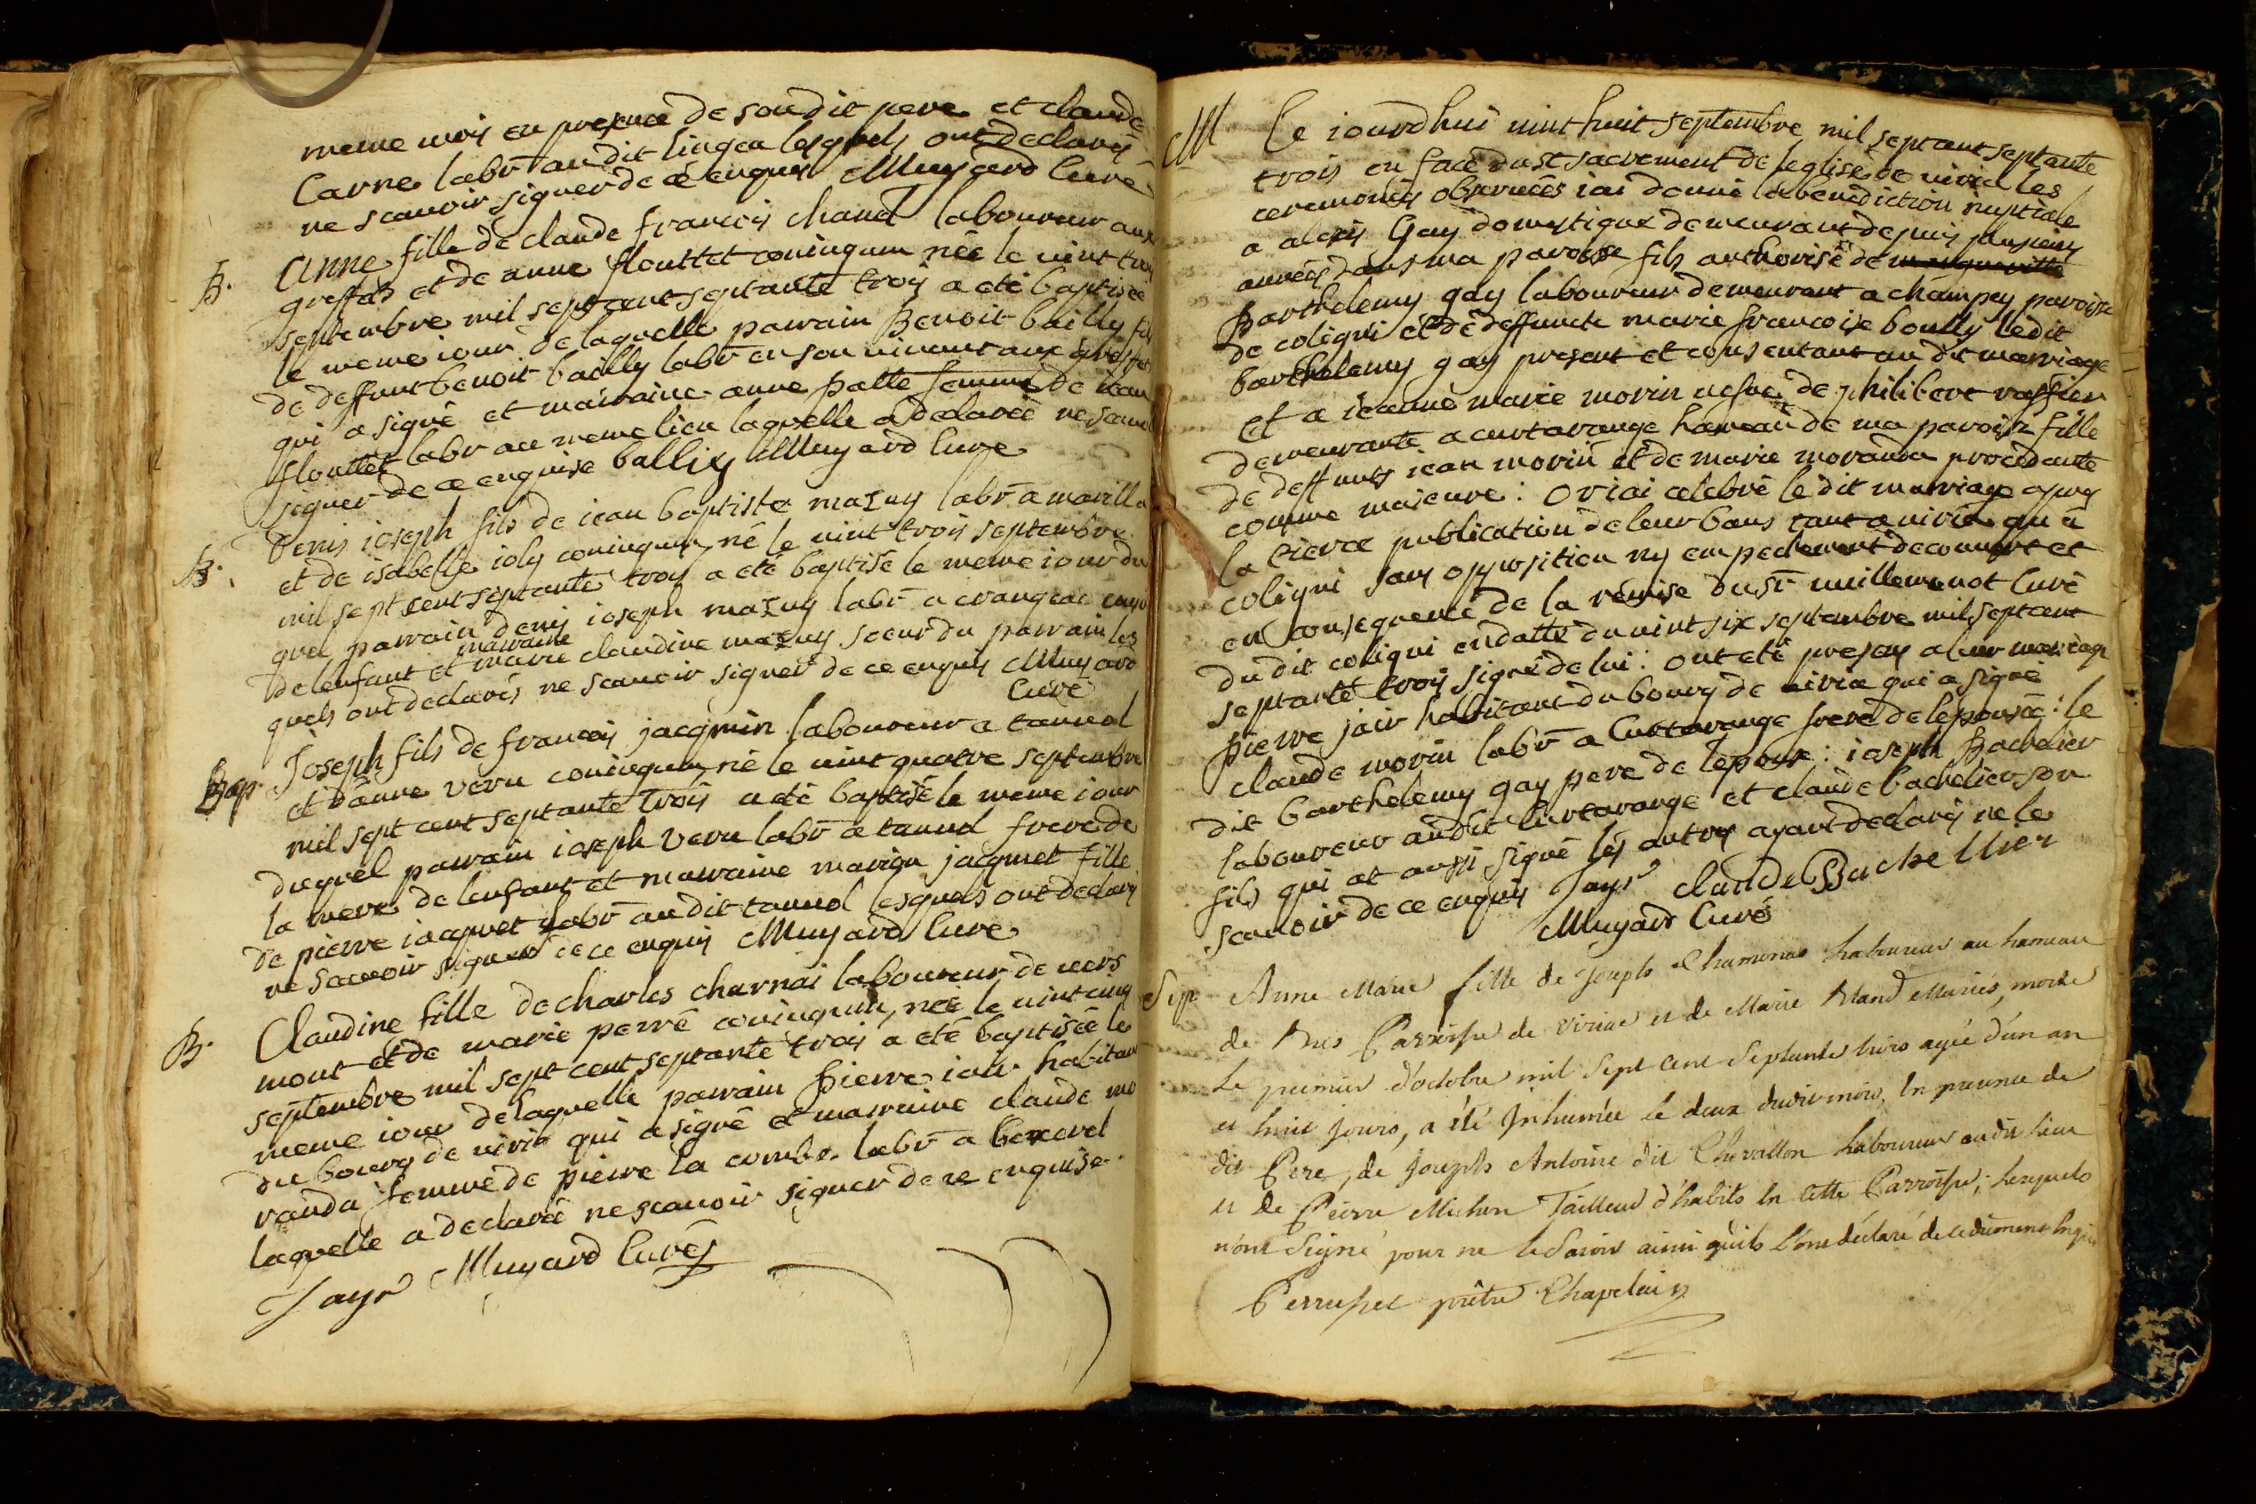 meme mois en presence de son dit pere et claude
Carne labr au dit lingea lesquels ont declarés
ne scauoir signer de ce enquis Muyard Curé
B. Anne fille de claude francois chanel laboureur aux
greffets et de anne flouttet coniugum née le uint trois
septembre mil sept cent septante trois a eté baptisée
le meme iour de laquelle parrain Benoit bailly fils
de deffunt benoit bailly labr en son uiuant aux greffets
qui a signé et mairaine anne patte femme de iean
flouttet labr au meme lieu laquelle a declareé ne scauoir
signer de ce enquise balliy Muyard Cure
B. Denis ioseph fils de iean baptiste mazuy labr a marilla
et de isabelle ioly coniugum, né le uint trois septembre
mil sept cent septante trois a eté baptisé le meme iour du
quel parrain denis ioseph mazuy labr a crangeac
mairaine
de lenfant et marie claudine mazuy soeur du parrain les
quels ont declarés ne scauoir signer de ce enquis Muyard
Curé
Bap. Joseph fils de francois jacquin laboureur a tannol
et danne veru coniugum, né le uint quatre septembre
mil sept cent septante trois a eté baptisé le meme iour
duquel parrain ioseph veru labr a tannol frere de
la mere de lenfant et marraine marion jacquet fille
de pierre iacquet labr au dit tannol lesquels ont declarés
ne scauoir signer de ce enquis Muyard Cure
B. Claudine fille de charles charnai laboureur de uers
mont et de marie perré coniugum, née le uint cinq
septembre mil sept cent septante trois a eté baptisée le
meme iour de laquelle parrain pierre iair habitant
du bourg de uiria qui a signé et marraine claude mo
randa femme de pierre la combe labr a beverel
laquelle a declareé ne scauoir signer de ce enquise.
Jayr Muyard Curé
M Ce iourdhui uint huit septembre mil sept cent septante
trois en face du st sacrement de leglise de uiria les
ceremonies obseruées iai donné la benediction nuptiale
a alexis Gay domestique demeurant depuis plusieurs
années dans ma paroisse fils authorisé de
Barthelemy gay laboureur demeurant a champey paroisse
de coligni et de deffuncte marie francoise boully le dit
barthelemy gay present et consentant au dit marriage
et a ieanne marie morin uefue de philibert raffier
demeurante a curtarange hameau de ma paroisse fille
de deffunts iean morin et de marie moranda procedante
comme majeure : or iai celebré le dit marriage apres
la tierce publication de leur bans tant a uiria qu a
coligni sans opposition ny empechement decouuert et
en consequence de la remise du sr uuillemenot Curé
du dit coligni en datte du uint six septembre mil sept cent
septante trois signé de lui : ont eté presens a leur marriage
pierre jair habitant du bourg de uiria qui a signé
claude morin labr a Curtarange frere de lepousée : le
dit barthelemy gay pere de lepoux : ioseph Bachelier
laboureur au dit Curtarange et claude bachelier son
fils qui at aussi signé les autres ayant declarés ne le
scauoir de ce enquis Jayr claude Bachellier
Muyard Curé
Sep. Anne Marie fille de Joseph Chamonas Laboureur au hameau
de Paroisse de Viriac et de Marie Bland Mariés, morte
Le premier d'octobre mil Sept Cent Septante trois agée d'un an
et huit jours, a été Inhumée le deux dudit mois, En presence de
dit Pere, de Joseph Antoine dit Chevallon Laboureur audit lieu
et de Pierre Michon Tailleur d'habits En Cette Parroisse ; Lesquels
n'ont Signé pour ne le Savoir ainsi qu'ils L'ont déclaré de ce dument Enquis
prêtre Chapelain